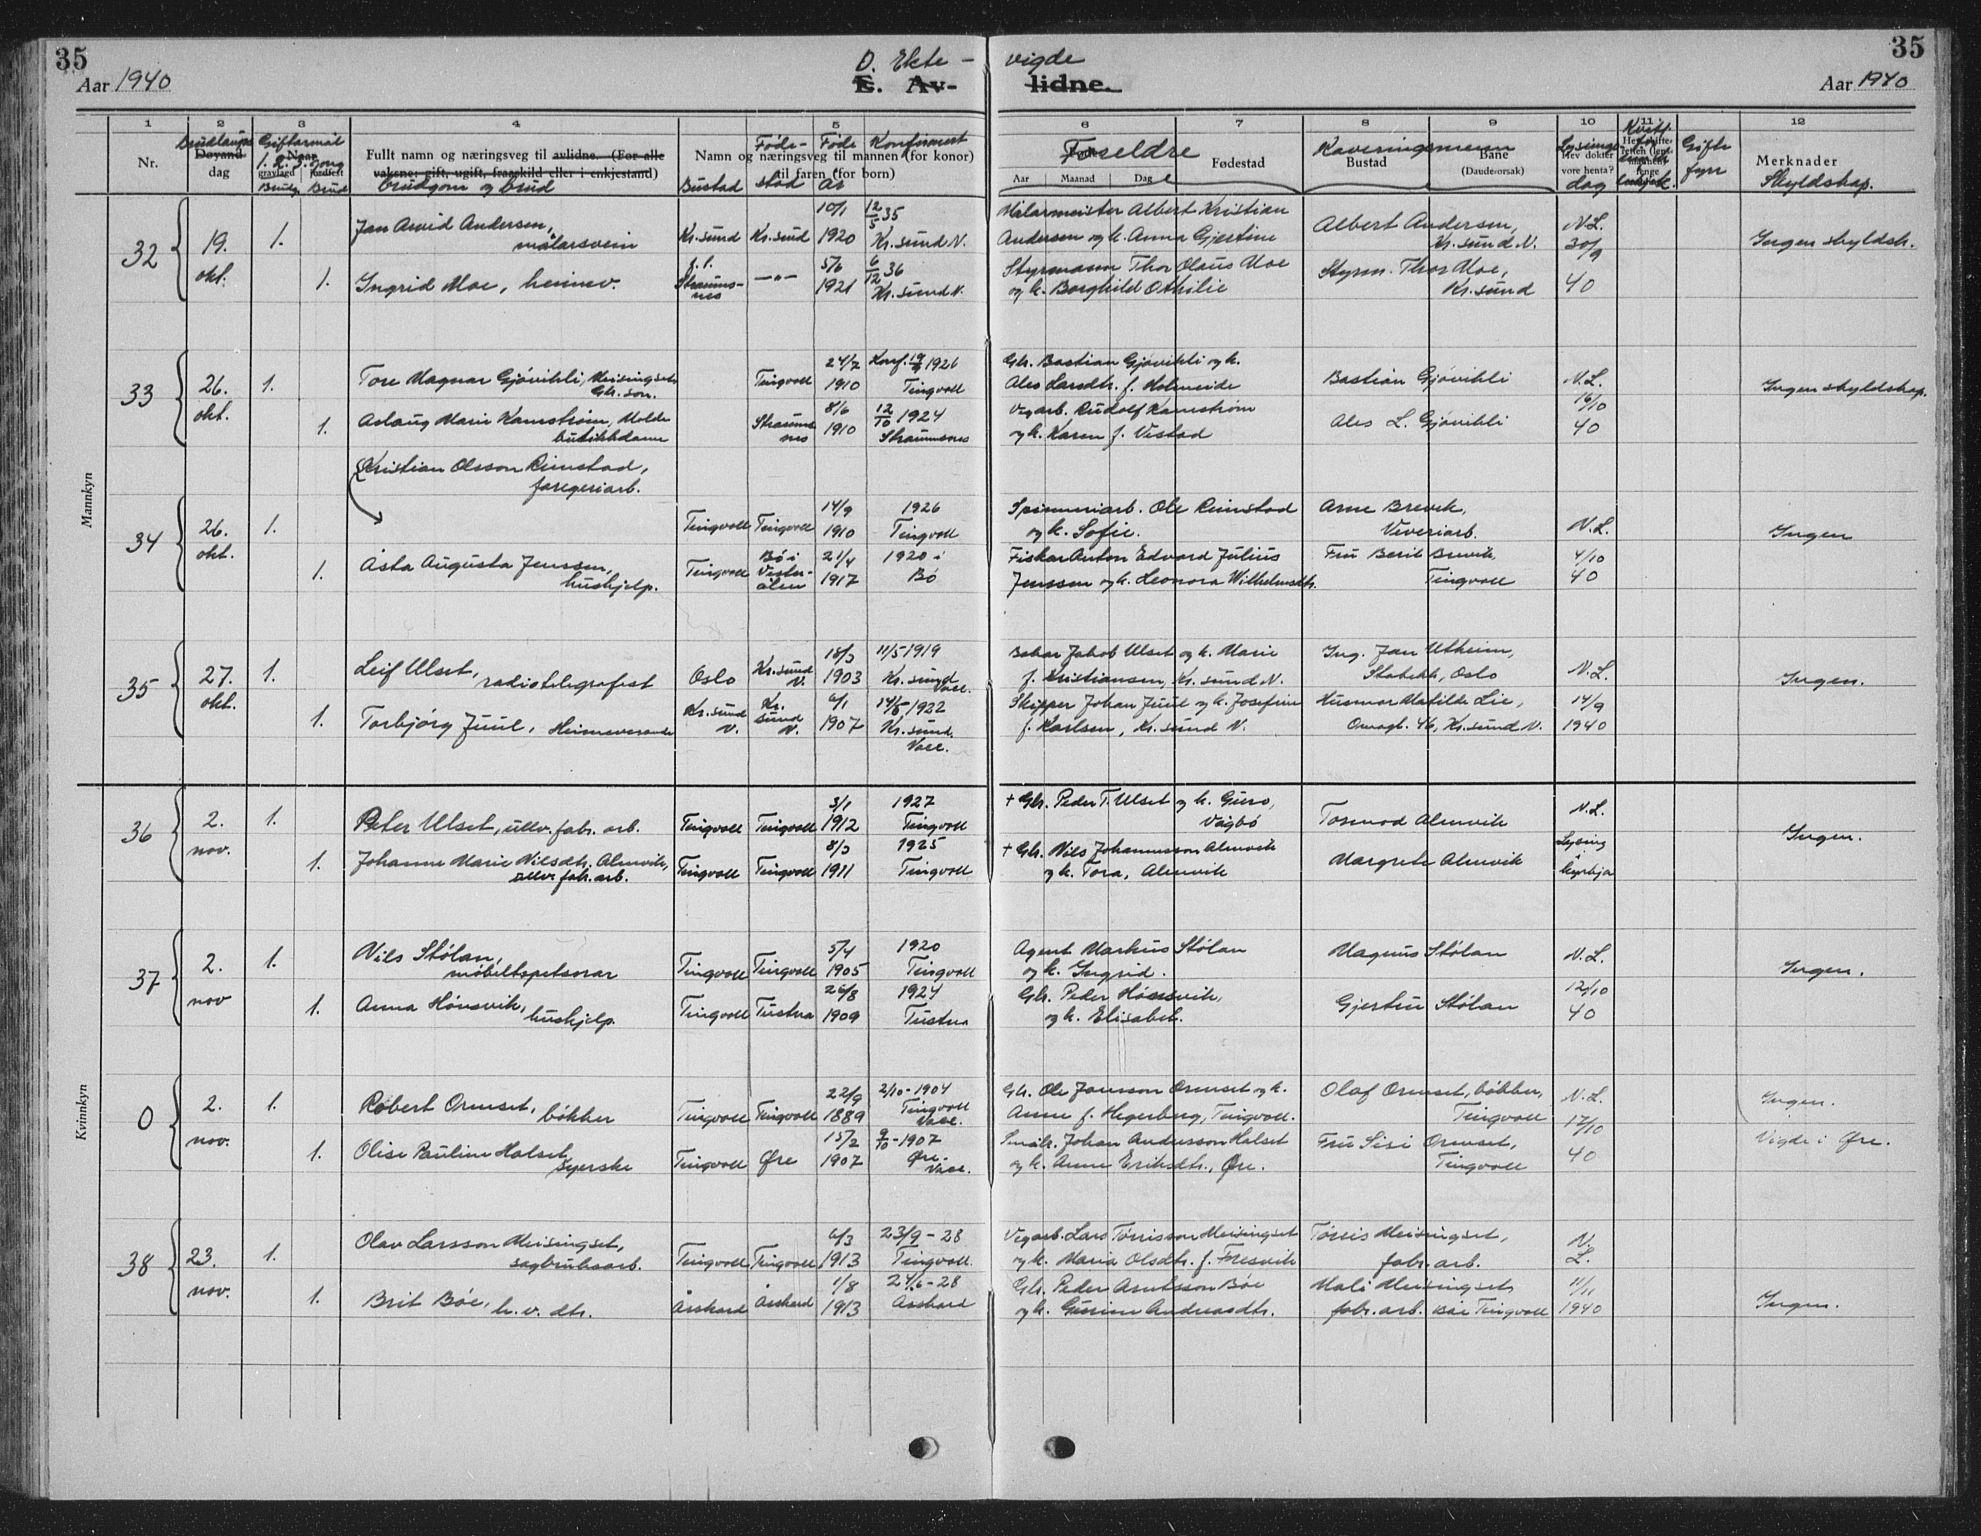 35
Aar 1940
D. Ekte - vigde
E. Av- lidne.
35
Aar 1940
1 2 3 4 5 6 7 8 9 10 11 12
Nr.
Brudlaups
Døyand
dag
Giftarmål
1. 2. 3. gong
Brudg. Brud
Fullt namn og næringsveg til avlidne. (For alle
vaksne: gift, ugift, fraaskild eller i enkjestand)
brudgom og brud
Namn og næringsveg til mannen (for konor)
til faren (for born)
Bustad
Føde-
stad
Føde
år
Konfirmert
Foreldre
Aar Maanad Dag
Fødestad
Kaveringsmenn
Bustad
Bane
(Daudeorsak)
Lysings-
Hev dokter
vore henta?
dag
Gifte
fyrr
Merknader
Skyldskap.
Mannkyn
32
19.
okt.
1.
Jan Arvid Andersen,
målarsvein
Kr.sund Kr.sund
10/1
1920
12/5 35
Kr.sund N.
Målarmeister Albert Kristian
Andersen og k. Anna Gjertine
Albert Andersen,
Kr.sund N.
N.L.
30/9
40
Ingen skyldsk.
1.
Ingrid Moe, heimev.
Straums-
nes
—"—
5/6
1921
6/12 36
Kr.sund N.
Styrmann Thor Olaus Moe
og k. Borghild Othilie
Styrm. Thor Moe,
Kr.sund
33
26.
okt.
1.
Tore Magnar Gjøvikli, Meisingset
Gbr. son.
Tingvoll
24/7
1910
Konf. 19/9 1926
Tingvoll
Gbr. Bastian Gjøvikli og k.
Ales Larsdtr. f. Holmeide
Bastian Gjøvikli
N.L.
16/10
40
Ingen skyldskap.
1.
Aslaug Marie Kamstrøm, Molde
butikkdame
Straums
nes
8/6
1910
12/10 1924
Straumsnes
Vegarb. Rudolf Kamstrøm
og k. Karen f. Vestad
Ales L. Gjøvikli
Kristian Olsson Rimstad,
faregeriarb.
34
26.
okt.
1.
Tingvoll Tingvoll
14/9
1910
1926
Tingvoll
Spinneriarb. Ole Rimstad
og k. Sofie.
Arne Brevik,
Veveriarb.
N.L.
4/10
40
Ingen
1.
Åsta Augusta Jenssen,
hushjelp.
Tingvoll
Bø i
Vester-
ålen
21/4
1917
1920 i
Bø
Fiskar Anton Edvard Julius
Jenssen og k. Leonora Wilhelmsdtr.
Fru Berit Brevik
Tingvoll
35
27.
okt.
1.
Leif Ulset, radiotelegrafist
Oslo
Kr.sund
N.
18/3
1903
11/5 1919
Kr.sund
Vacc.
Bakar Jakob Ulset og k. Marie
f. Kristiansen, Kr.sund N.
Ing. Jan Utheim,
Stabekk, Oslo
N.L.
14/9
1940
Ingen.
1.
Torbjørg Juul, Heimeverande
Kr.sund
N.
Kr.
sund
N.
6/1
1907
14/5 1922
Kr.sund.
Vacc.
Skipper Johan Juul og k. Josefine
f. Karlsen, Kr.sund N.
Husmor Matilde Lie,
46, Kr.sund N.
36
2.
nov.
1.
Peter Ulset, ullv. fabr. arb.
Tingvoll Tingvoll
3/1
1912
1927
Tingvoll
+ Gbr. Peder T. Ulset og k. Guro,
Vågbø
Tormod Almvik
N.L.
Lysing
i
kyrkja
Ingen.
1.
Johanne Marie Nilsdtr. Almvik,
ullv. fabr. arb.
Tingvoll Tingvoll
8/3
1911
1925
Tingvoll
+ Gbr. Nils Johannesson Almvik
og k. Tora, Almvik
Margrete Almvik
Kvinnkyn
37
2.
nov
1.
Nils Stølan,
møbeltapetserar
Tingvoll Tingvoll
5/4
1905
1920
Tingvoll
Agent Markus Stølan
og k. Ingrid.
Magnus Stølan
N.L.
12/10
40
Ingen.
1.
Anna Hønsvik,
hushjelp.
Tingvoll Tustna
26/8
1909
1924
Tustna
Gbr. Peder Hønsvik,
og k. Elisabet.
Gjertru Stølan
0
2.
nov.
1.
Robert Ormset, bøkker
Tingvoll Tingvoll
22/9
1889
2/10 - 1904
Tingvoll
Vacc.
Gbr. Ole Jonsson Ormset og k.
Anne f. Hegerberg, Tingvoll.
Olaf Ormset, bøkker,
Tingvoll
N.L.
17/10
40
Ingen.
Vigde i Øre.
1.
Olise Pauline Holset,
syerske
Tingvoll Øre
15/2
1907
9/10 - 1907
Øre.
Vacc.
Småbr. Johan Andersson Holset
og k. Anne Eriksdtr., Øre.
Fru Sisi Ormset,
Tingvoll
38
23.
nov.
1.
Olav Larsson Meisingset,
sagbruksarb.
Tingvoll Tingvoll
6/3
1913
23/9 - 28
Tingvoll
Vegarb. Lars Tørrisson Meisingset
og k. Maria Olsdtr. f. Fresvik
Tørris Meisingset,
fabr. arb.
N.
L.
11/11
1940
Ingen.
1.
Brit Bøe, h.v. dtr.
Åsskard Åsskard
1/8
1913
24/6 - 28
Åsskard
Gbr. Peder Arntsson Bøe
og k. Gurine Andreasdtr.
Mali Meisingset
fabr. arb. Tingvoll